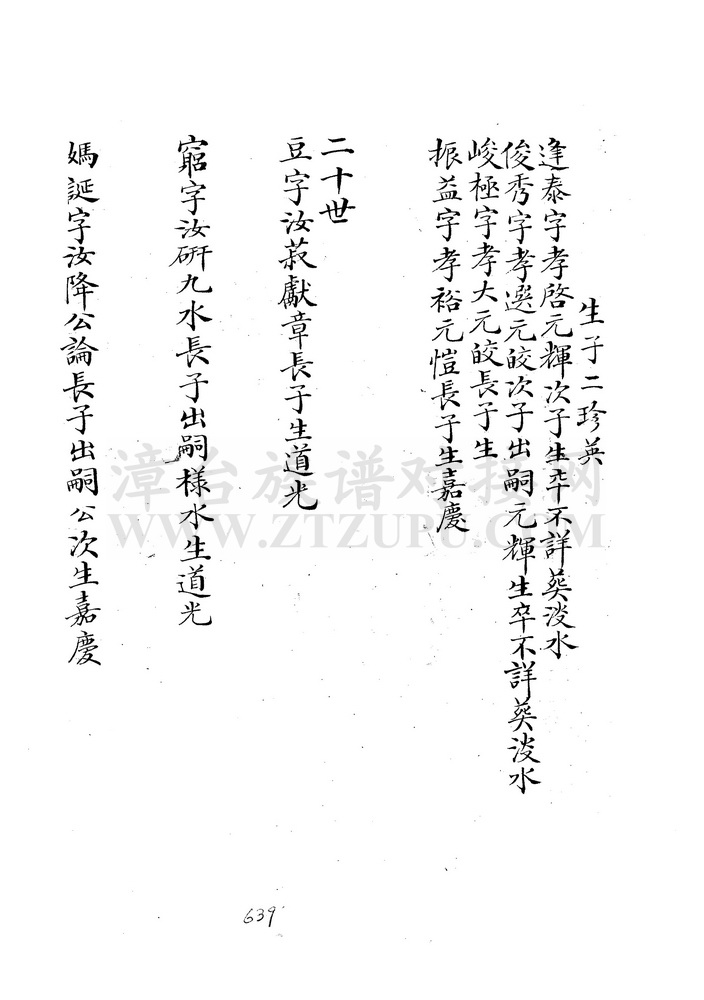 生子二珍英
逢泰字孝啓元輝次子生卒不詳葬淡水
俊秀字孝選元皎次子出嗣元輝生卒不詳葬淡水
峻極字孝大元皎長子生
振益字孝裕元愷長子生嘉慶
二十世
豆字汝菽獻章長子生道光
窮字汝研九水長子出嗣樣水生道光
媽誕字汝降公論長子出嗣公次生嘉慶
漳台族谱对接网
WWW.ZTZUPU.COM
639